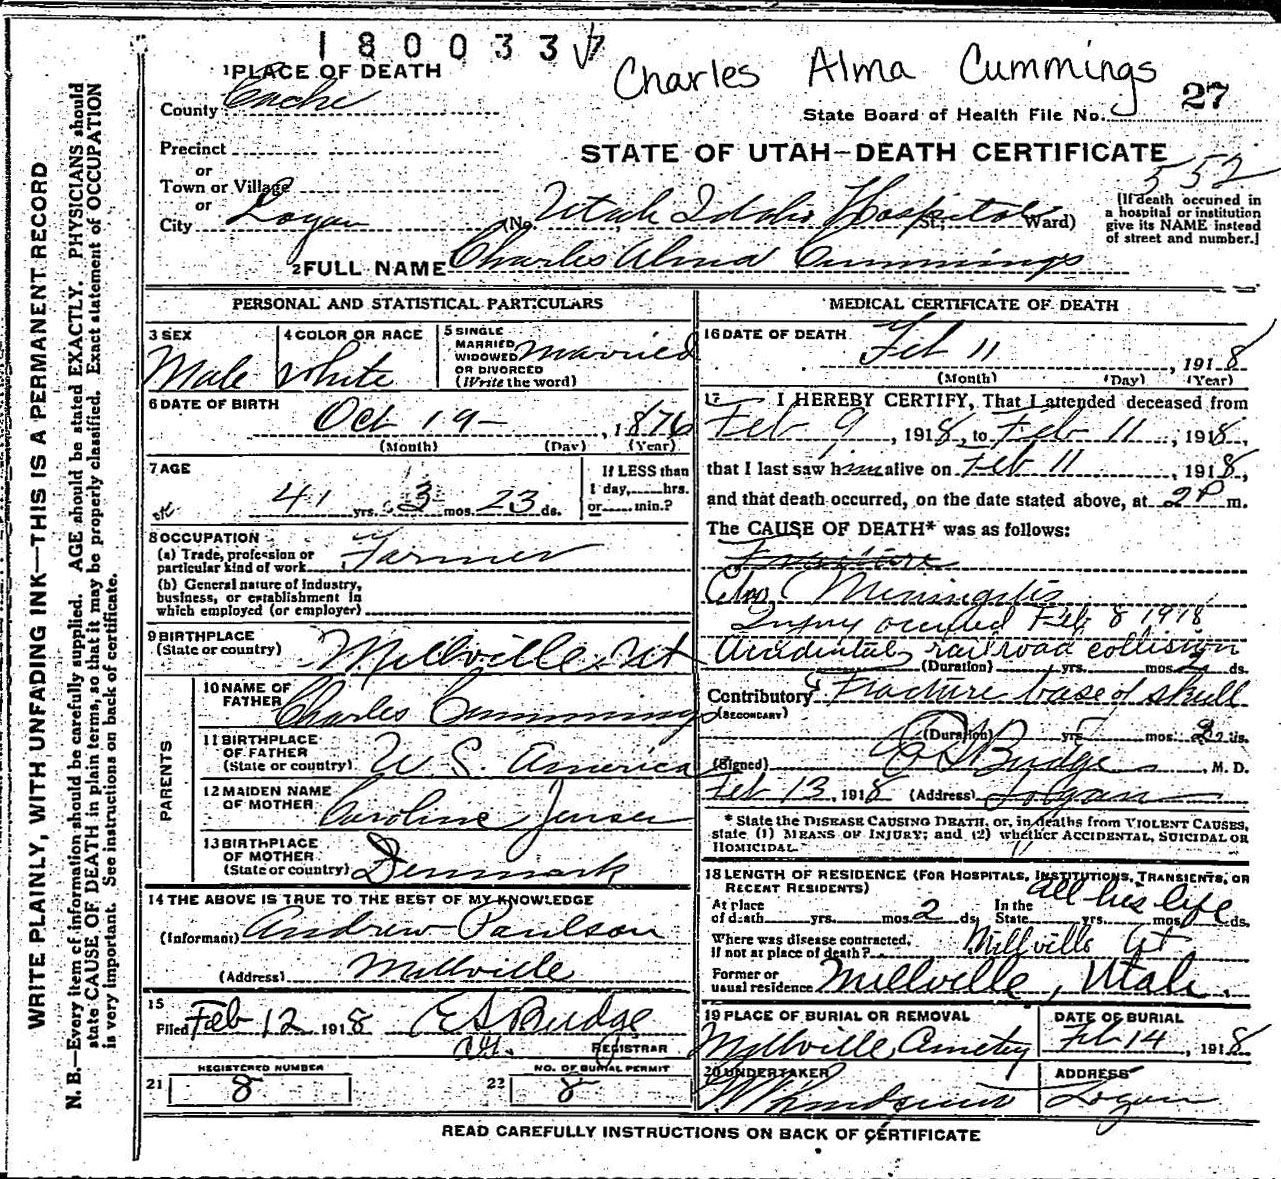 180033
Charles Alma Cummings
27
1 PLACE OF DEATH
County Cache
State Board of Health File No.
Precinct
STATE OF UTAH—DEATH CERTIFICATE
or
552
Town or Village
or
City Logan (No. Utah Idaho Hospital St.; Ward)
[If death occurred in
a hospital or institution
give its NAME instead
of street and number.]
2 FULL NAME Charles Alma Cummings
PERSONAL AND STATISTICAL PARTICULARS
3 SEX Male
4 COLOR OR RACE White
5 SINGLE
MARRIED
WIDOWED
OR DIVORCED
(Write the word) Married
6 DATE OF BIRTH
Oct 19 – , 1876
(Month) (Day) (Year)
7 AGE
41 yrs. 3 mos. 23 ds.
If LESS than
1 day, hrs.
or min.?
8 OCCUPATION
(a) Trade, profession or
particular kind of work Farmer
(b) General nature of Industry,
business, or establishment in
which employed (or employer)
9 BIRTHPLACE
(State or country) Millville, Ut
PARENTS
10 NAME OF
FATHER Charles Cummings
11 BIRTHPLACE
OF FATHER
(State or country) U S. America
12 MAIDEN NAME
OF MOTHER Caroline Jensen
13 BIRTHPLACE
OF MOTHER
(State or country) Denmark
14 THE ABOVE IS TRUE TO THE BEST OF MY KNOWLEDGE
(Informant) Andrew Paulson
(Address) Millville
15
Filed Feb 12 1918 E S Budge
REGISTRAR
REGISTERED NUMBER
21 8
NO. OF BURIAL PERMIT
22 8
MEDICAL CERTIFICATE OF DEATH
16 DATE OF DEATH
Feb 11 , 1918
(Month) (Day) (Year)
17 I HEREBY CERTIFY, That I attended deceased from
Feb 9 , 1918, to Feb 11 , 1918,
that I last saw him alive on Feb 11 , 1918,
and that death occurred, on the date stated above, at 2 P m.
The CAUSE OF DEATH* was as follows:
Fracture
Meningitis
Injury occurred Feb 8 1918
Accidental railroad collision
(Duration) yrs. mos. 2 ds.
Contributory Fracture base of skull
(SECONDARY)
(Duration) yrs. mos. 2 ds.
(Signed) E S Budge , M. D.
Feb 13, 1918 (Address) Logan
* State the DISEASE CAUSING DEATH, or, in deaths from VIOLENT CAUSES,
state (1) MEANS OF INJURY; and (2) whether ACCIDENTAL, SUICIDAL OR
HOMICIDAL.
18 LENGTH OF RESIDENCE (FOR HOSPITALS, INSTITUTIONS, TRANSIENTS, OR
RECENT RESIDENTS)
At place
of death yrs. mos. 2 ds. In the
State all his life yrs. mos. ds.
Where was disease contracted,
if not at place of death? Millville Ut
Former or
usual residence Millville, Utah.
19 PLACE OF BURIAL OR REMOVAL
Millville Cemetry
DATE OF BURIAL
Feb 14 , 1918
20 UNDERTAKER
ADDRESS
Logan
READ CAREFULLY INSTRUCTIONS ON BACK OF CERTIFICATE
WRITE PLAINLY, WITH UNFADING INK—THIS IS A PERMANENT RECORD
N. B.—Every item of information should be carefully supplied. AGE should be stated EXACTLY. PHYSICIANS should
state CAUSE OF DEATH in plain terms, so that it may be properly classified. Exact statement of OCCUPATION
is very important. See instructions on back of certificate.